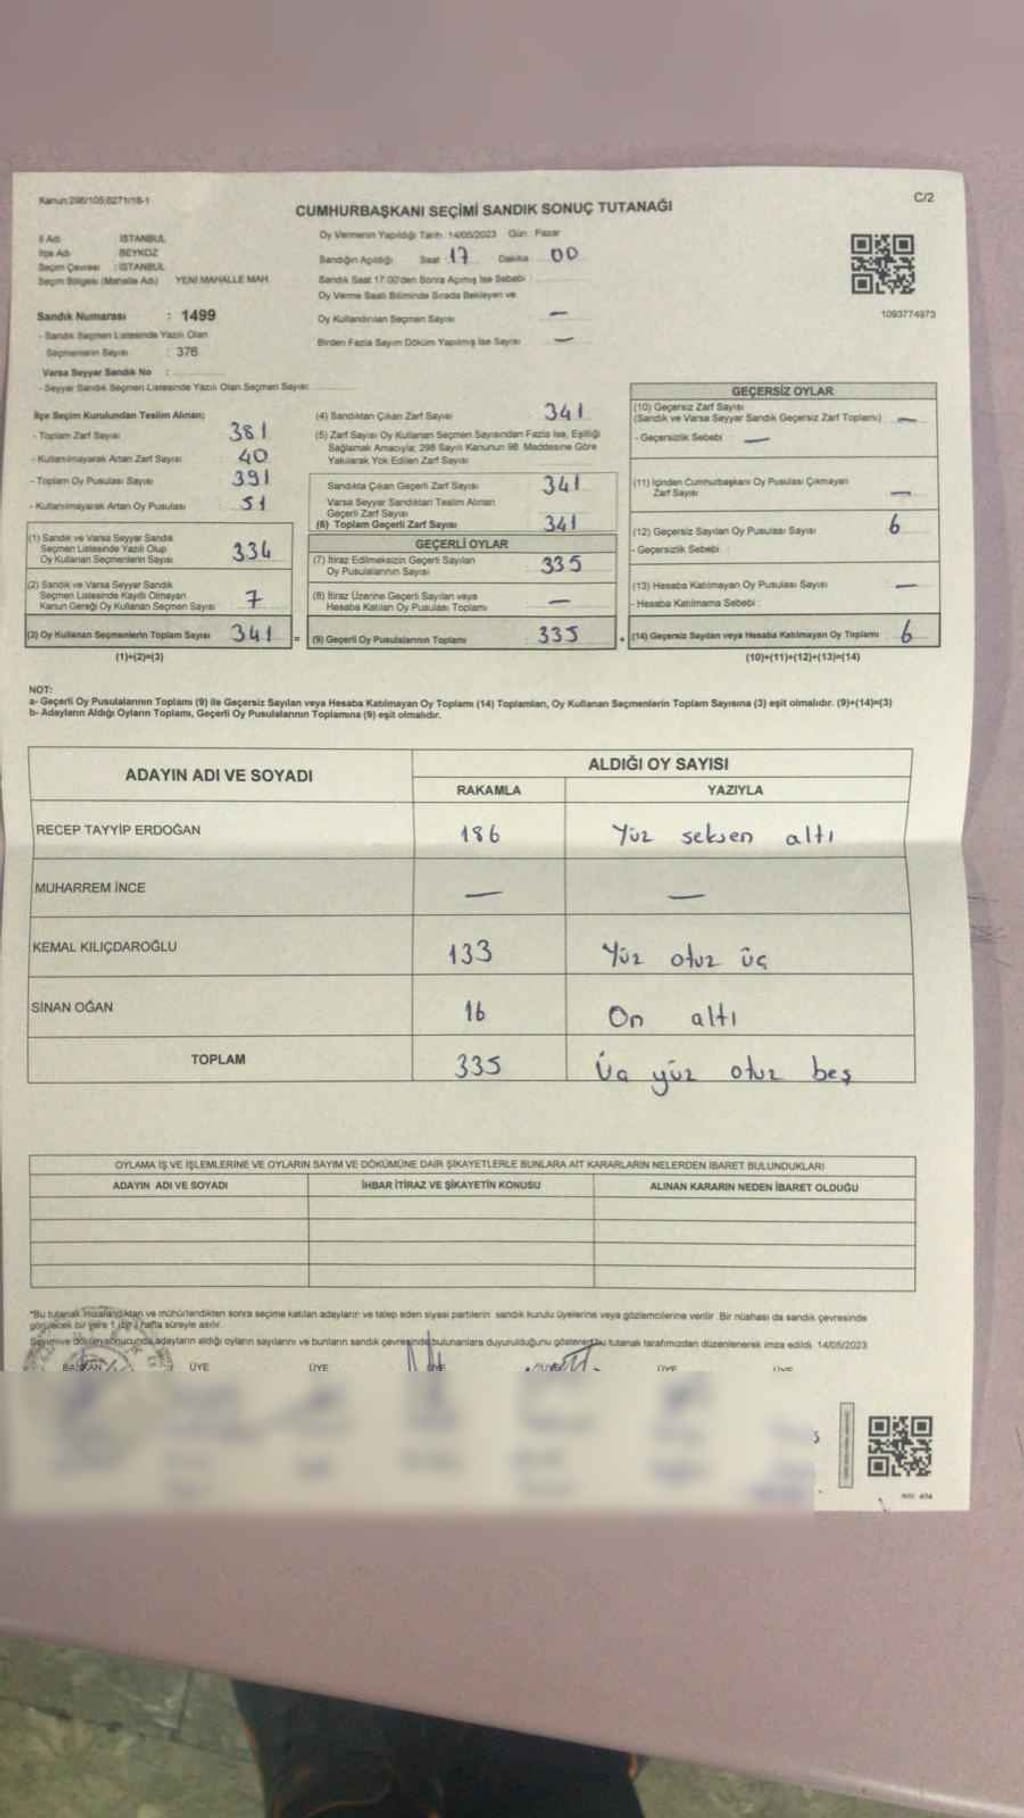 Kanun:298/105,6271/18-1
C/2
CUMHURBAŞKANI SEÇİMİ SANDIK SONUÇ TUTANAĞI
İl Adı İSTANBUL
İlçe Adı BEYKOZ
Seçim Çevresi : İSTANBUL
Seçim Bölgesi (Mahalle Adı) YENİ MAHALLE MAH.
Sandık Numarası : 1499
- Sandık Seçmen Listesinde Yazılı Olan
Seçmenlerin Sayısı : 376
Varsa Seyyar Sandık No :
- Seyyar Sandık Seçmen Listesinde Yazılı Olan Seçmen Sayısı:
Oy Vermenin Yapıldığı Tarih: 14/05/2023 Gün: Pazar
Sandığın Açıldığı Saat 17 Dakika 00
Sandık Saat 17.00'den Sonra Açılmış İse Sebebi :
Oy Verme Saati Bitiminde Sırada Bekleyen ve
Oy Kullandırılan Seçmen Sayısı —
Birden Fazla Sayım Döküm Yapılmış İse Sayısı —
1093774973
İlçe Seçim Kurulundan Teslim Alınan;
- Toplam Zarf Sayısı 381
- Kullanılmayarak Artan Zarf Sayısı 40
- Toplam Oy Pusulası Sayısı 391
- Kullanılmayarak Artan Oy Pusulası 51
(1) Sandık ve Varsa Seyyar Sandık
Seçmen Listesinde Yazılı Olup
Oy Kullanan Seçmenlerin Sayısı 334
(2) Sandık ve Varsa Seyyar Sandık
Seçmen Listesinde Kayıtlı Olmayan
Kanun Gereği Oy Kullanan Seçmen Sayısı 7
(3) Oy Kullanan Seçmenlerin Toplam Sayısı 341 =
(1)+(2)=(3)
(4) Sandıktan Çıkan Zarf Sayısı 341
(5) Zarf Sayısı Oy Kullanan Seçmen Sayısından Fazla İse, Eşitliği
Sağlamak Amacıyla; 298 Sayılı Kanunun 98. Maddesine Göre
Yakılarak Yok Edilen Zarf Sayısı
Sandıkta Çıkan Geçerli Zarf Sayısı 341
Varsa Seyyar Sandıktan Teslim Alınan
Geçerli Zarf Sayısı
(6) Toplam Geçerli Zarf Sayısı 341
GEÇERLİ OYLAR
(7) İtiraz Edilmeksizin Geçerli Sayılan
Oy Pusulalarının Sayısı 335
(8) İtiraz Üzerine Geçerli Sayılan veya
Hesaba Katılan Oy Pusulası Toplamı —
(9) Geçerli Oy Pusulalarının Toplamı 335 +
GEÇERSİZ OYLAR
(10) Geçersiz Zarf Sayısı
(Sandık ve Varsa Seyyar Sandık Geçersiz Zarf Toplamı) —
- Geçersizlik Sebebi : —
(11) İçinden Cumhurbaşkanı Oy Pusulası Çıkmayan
Zarf Sayısı —
(12) Geçersiz Sayılan Oy Pusulası Sayısı 6
- Geçersizlik Sebebi :
(13) Hesaba Katılmayan Oy Pusulası Sayısı —
- Hesaba Katılmama Sebebi :
(14) Geçersiz Sayılan veya Hesaba Katılmayan Oy Toplamı 6
(10)+(11)+(12)+(13)=(14)
NOT:
a- Geçerli Oy Pusulalarının Toplamı (9) ile Geçersiz Sayılan veya Hesaba Katılmayan Oy Toplamı (14) Toplamları, Oy Kullanan Seçmenlerin Toplam Sayısına (3) eşit olmalıdır. (9)+(14)=(3)
b- Adayların Aldığı Oyların Toplamı, Geçerli Oy Pusulalarının Toplamına (9) eşit olmalıdır.
ADAYIN ADI VE SOYADI ALDIĞI OY SAYISI
RAKAMLA YAZIYLA
RECEP TAYYİP ERDOĞAN 186 Yüz seksen altı
MUHARREM İNCE — —
KEMAL KILIÇDAROĞLU 133 Yüz otuz üç
SİNAN OĞAN 16 On altı
TOPLAM 335 Üç yüz otuz beş
OYLAMA İŞ VE İŞLEMLERİNE VE OYLARIN SAYIM VE DÖKÜMÜNE DAİR ŞİKAYETLERLE BUNLARA AİT KARARLARIN NELERDEN İBARET BULUNDUKLARI
ADAYIN ADI VE SOYADI İHBAR İTİRAZ VE ŞİKAYETİN KONUSU ALINAN KARARIN NEDEN İBARET OLDUĞU
*Bu tutanak imzalandıktan ve mühürlendikten sonra seçime katılan adayların ve talep eden siyasi partilerin sandık kurulu üyelerine veya gözlemcilerine verilir. Bir nüshası da sandık çevresinde
görülecek bir yere 1 (bir) hafta süreyle asılır.
Sayım ve döküm sonucunda adayların aldığı oyların sayılarını ve bunların sandık çevresinde bulunanlara duyurulduğunu gösteren bu tutanak tarafımızdan düzenlenerek imza edildi. 14/05/2023
BAŞKAN ÜYE ÜYE ÜYE ÜYE ÜYE